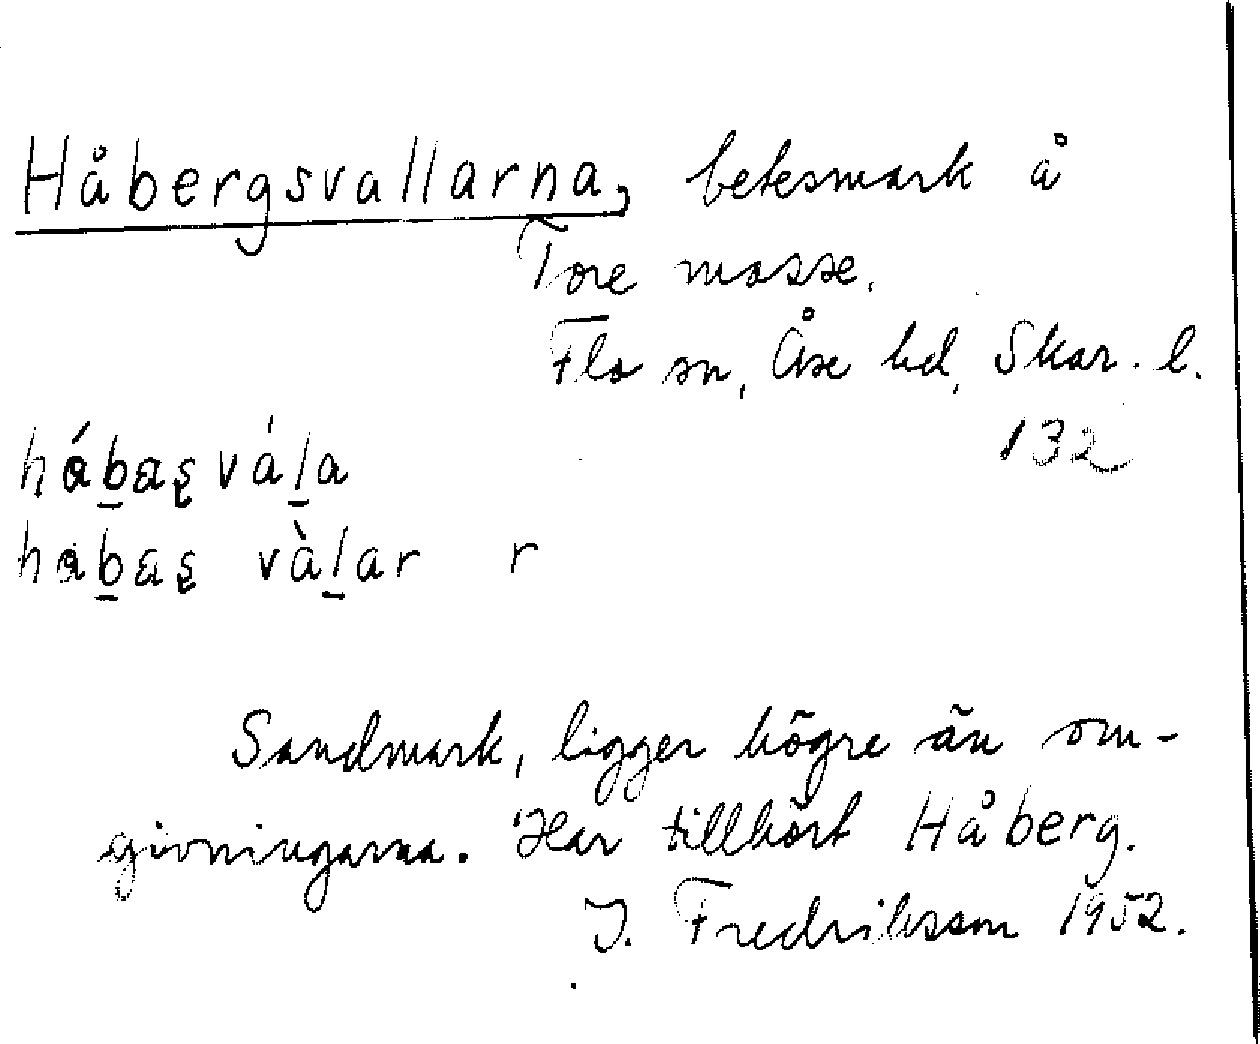 Håbergsvallarna, betesmark å
Tore mosse.
Flo sn, Åse hd, Skar. l.
132
hábas̨vála
habas̨ vàlar r
Sandmark, ligger högre än om-
givningarna. Har tillhört Håberg.
I. Fredriksson 1952.